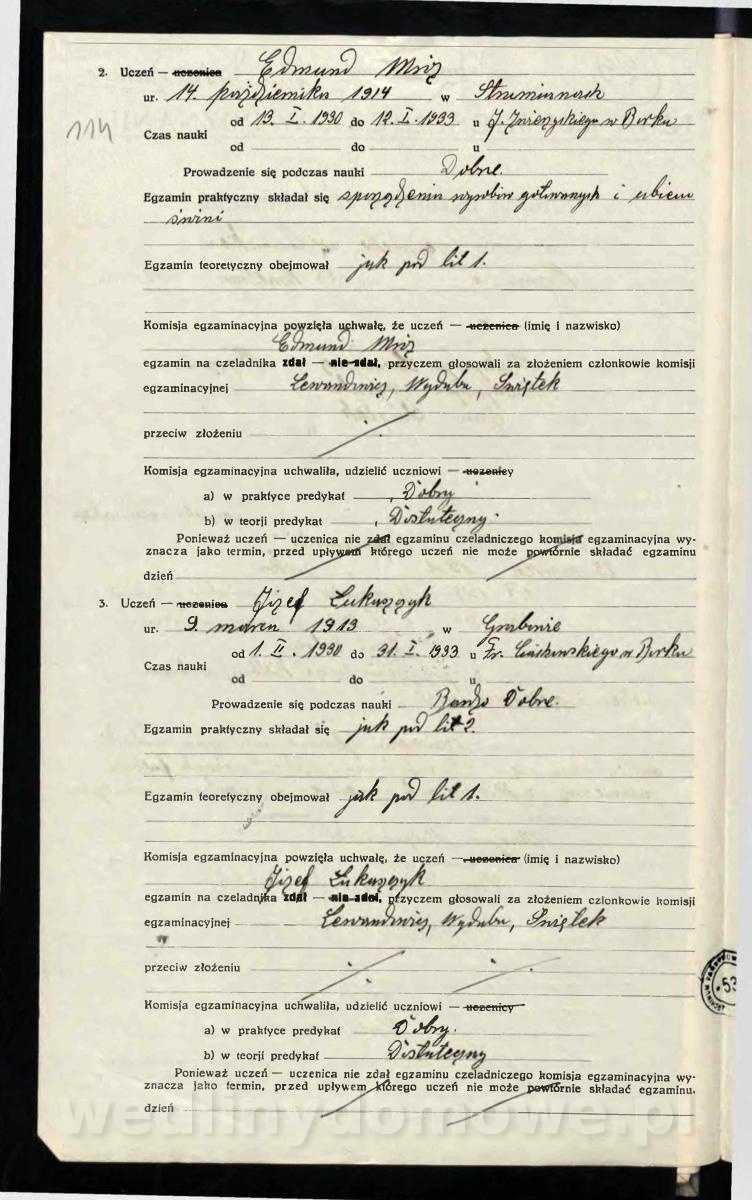 2. Uczeń — uczenica Edmund Mróz
ur. 14. października 1914 w
114
od 13. I. 1930 do 12. I. 1933 u J. w Borku
Czas nauki
od do u
Prowadzenie się podczas nauki Dobre.
Egzamin praktyczny składał się sporządzenia wyrobów gotowanych i ubicia
świni
Egzamin teoretyczny obejmował jak pod lit 1.
Komisja egzaminacyjna powzięła uchwałę, że uczeń — uczenica (imię i nazwisko)
Edmund Mróz
egzamin na czeladnika zdał — nie zdał, przyczem głosowali za złożeniem członkowie komisji
egzaminacyjnej Lewandowicz, Wyduba, Świętek
przeciw złożeniu
Komisja egzaminacyjna uchwaliła, udzielić uczniowi — uczenicy
a) w praktyce predykat Dobry
b) w teorji predykat Dostateczny
Ponieważ uczeń — uczenica nie zdał egzaminu czeladniczego komisja egzaminacyjna wy-
znacza jako termin, przed upływem którego uczeń nie może powtórnie składać egzaminu
dzień
3. Uczeń — uczenica Józef Łukaszyk
ur. 9. marca 1913 w Grabonie
od 1. II. 1930 do 31. I. 1933 u Fr. w Borku
Czas nauki
od do u
Prowadzenie się podczas nauki Bardzo Dobre.
Egzamin praktyczny składał się jak pod lit 2.
Egzamin teoretyczny obejmował jak pod lit 1.
Komisja egzaminacyjna powzięła uchwałę, że uczeń — uczenica (imię i nazwisko)
Józef Łukaszyk
egzamin na czeladnika zdał — nie zdał, przyczem głosowali za złożeniem członkowie komisji
egzaminacyjnej Lewandowicz, Wyduba, Świętek
przeciw złożeniu
Komisja egzaminacyjna uchwaliła, udzielić uczniowi — uczenicy
a) w praktyce predykat Dobry.
b) w teorji predykat Dostateczny
Ponieważ uczeń — uczenica nie zdał egzaminu czeladniczego komisja egzaminacyjna wy-
znacza jako termin, przed upływem którego uczeń nie może powtórnie składać egzaminu.
dzień
wedlinydomowe.pl